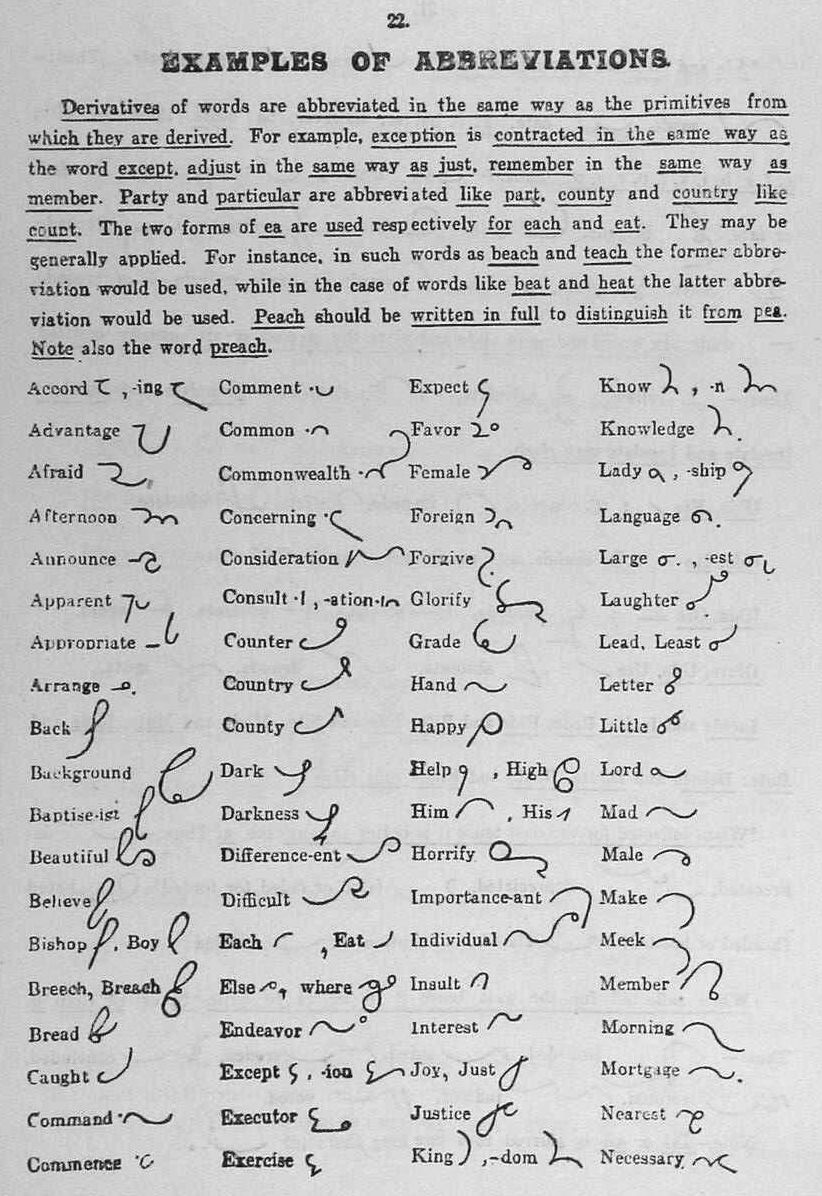 22.
EXAMPLES OF ABBREVIATIONS.
Derivatives of words are abbreviated in the same way as the primitives from
which they are derived. For example, exception is contracted in the same way as
the word except, adjust in the same way as just, remember in the same way as
member. Party and particular are abbreviated like part, county and country like
count. The two forms of ea are used respectively for each and eat. They may be
generally applied. For instance, in such words as beach and teach the former abbre-
viation would be used, while in the case of words like beat and heat the latter abbre-
viation would be used. Peach should be written in full to distinguish it from pea.
Note also the word preach.
Accord , -ing Comment Expect Know , -n
Advantage Common Favor Knowledge
Afraid Commonwealth Female Lady , -ship
Afternoon Concerning Foreign Language
Announce Consideration Forgive Large , -est
Apparent Consult , -ation Glorify Laughter
Appropriate Counter Grade Lead, Least
Arrange Country Hand Letter
Back County Happy Little
Background Dark Help , High Lord
Baptise-ist Darkness Him , His Mad
Beautiful Difference-ent Horrify Male
Believe Difficult Importance-ant Make
Bishop , Boy Each , Eat Individual Meek
Breech, Breach Else , where Insult Member
Bread Endeavor Interest Morning
Caught Except , -ion Joy, Just Mortgage
Command Executor Justice Nearest
Commence Exercise King , -dom Necessary